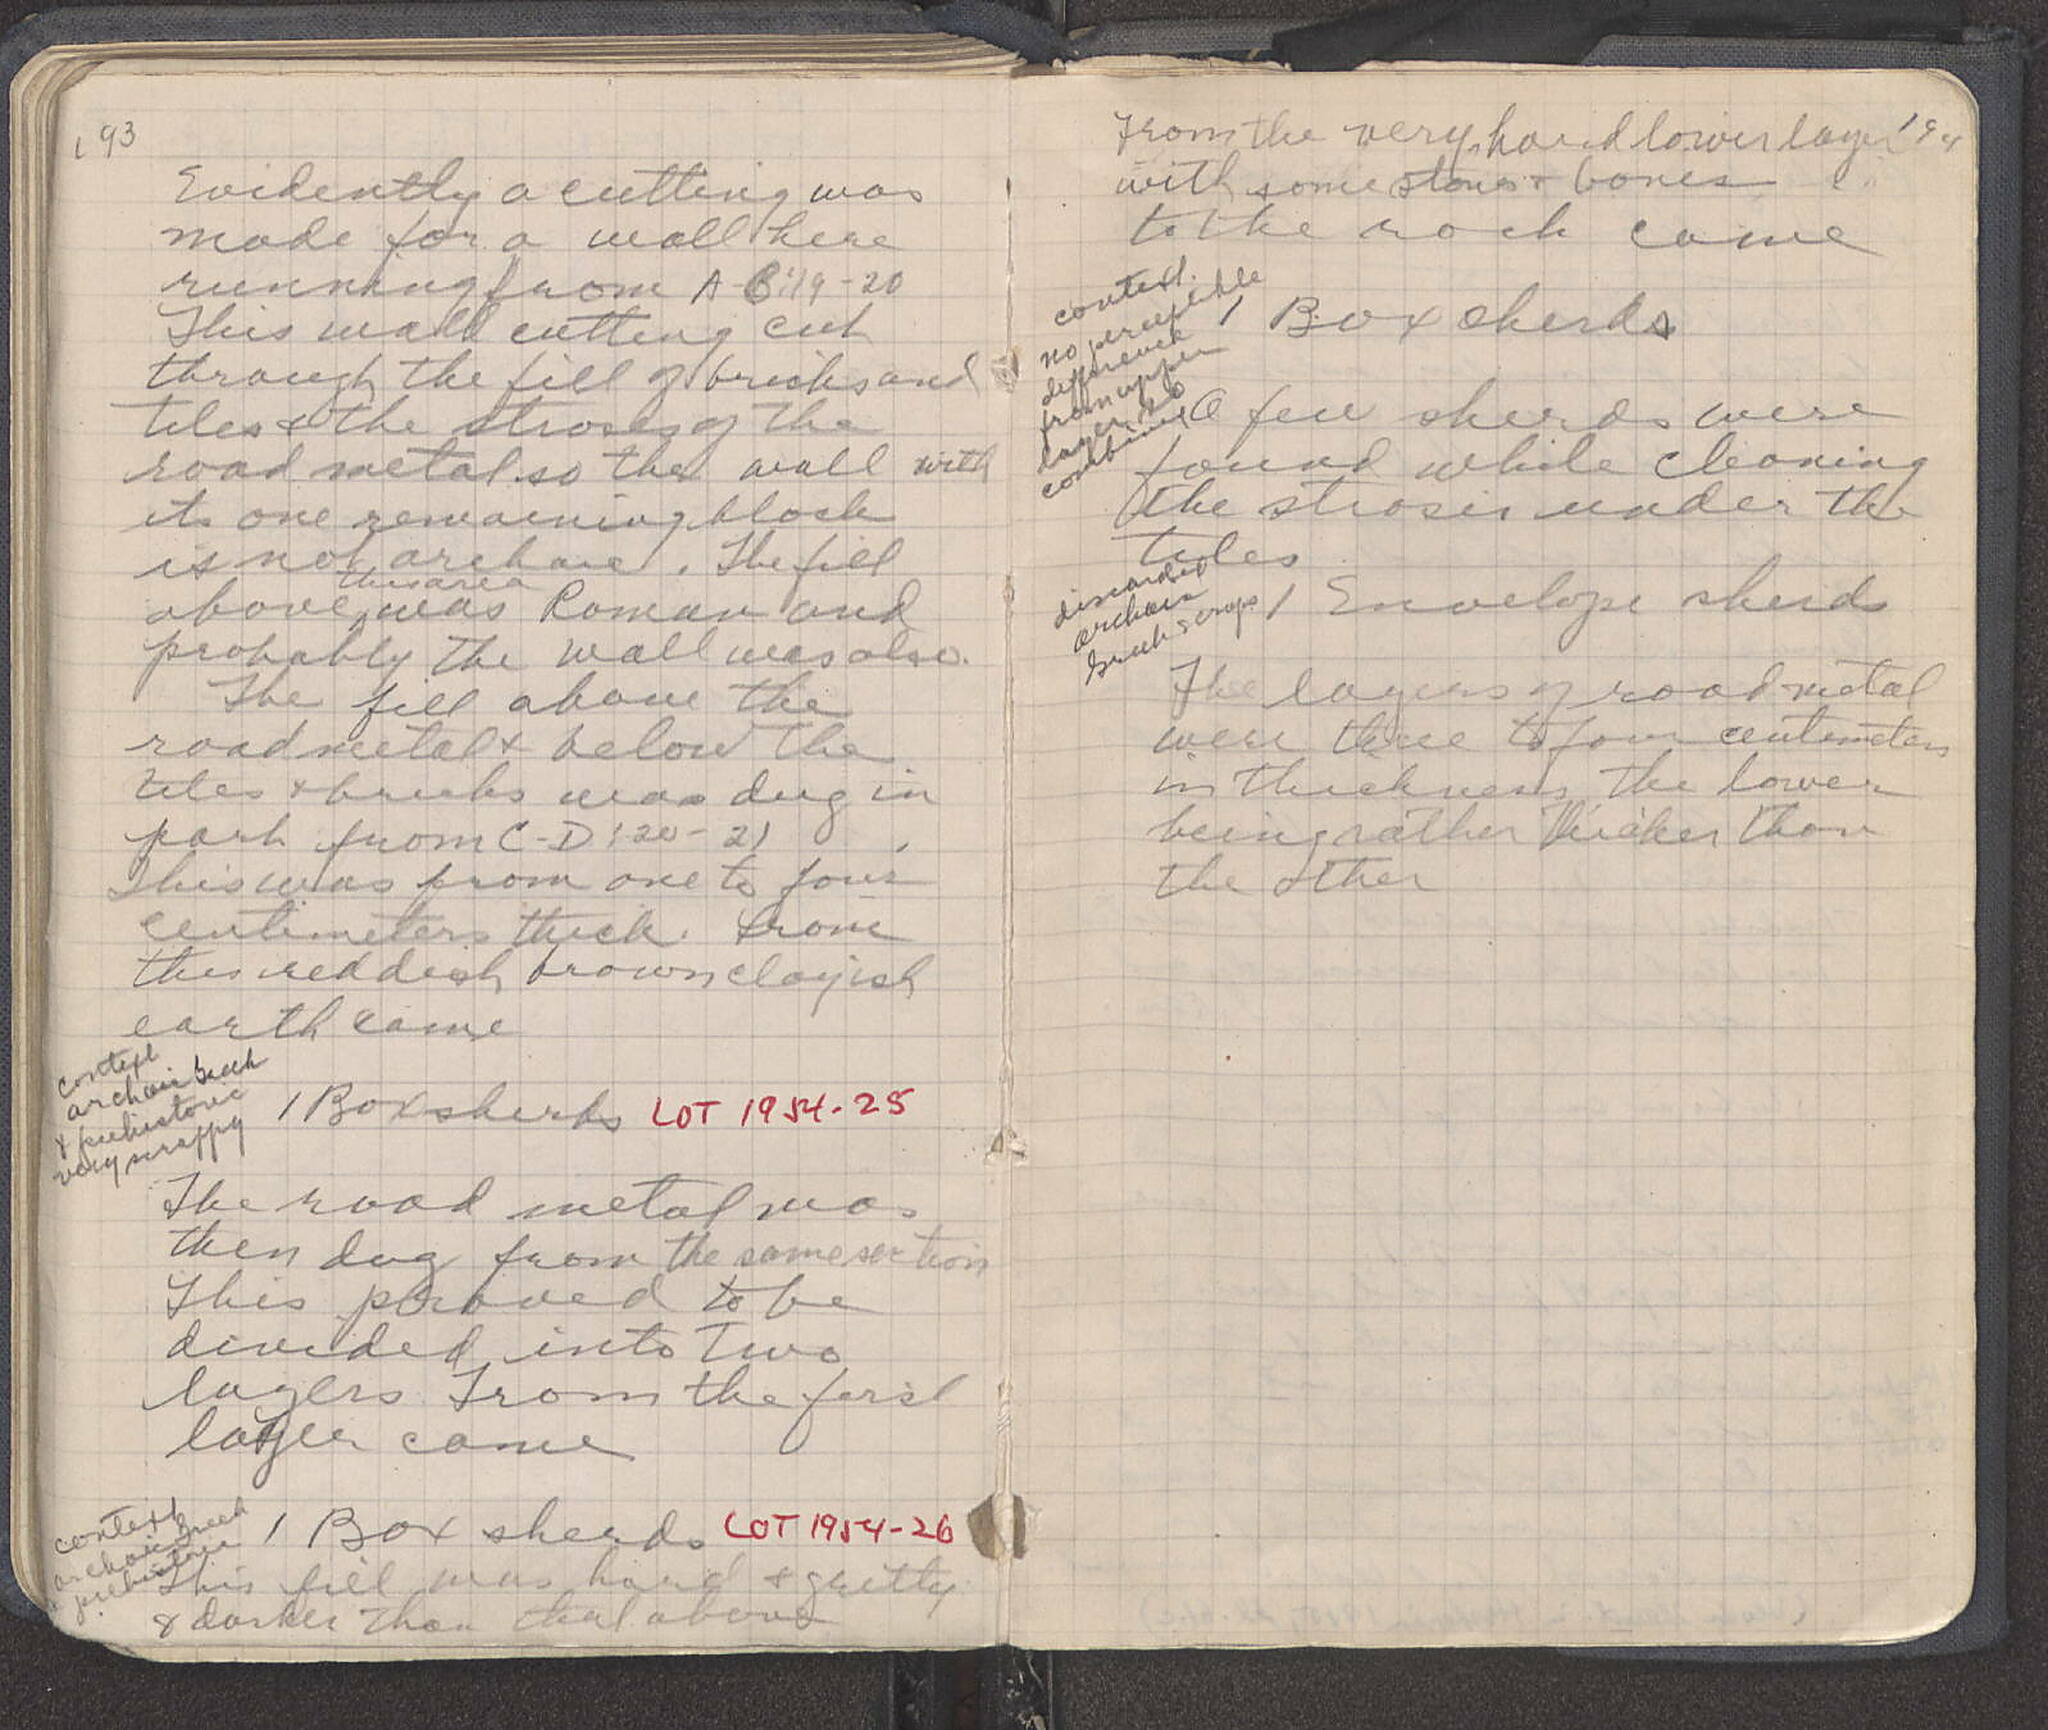 193
Evidently a cutting was
made for a wall here
running from A-C:19-20
This wall cutting cut
through the fill of bricks and
tiles & the stroses of the
road metal so the wall with
its one remaining block
is not archaic. The fill
this area
above, was Roman and
probably the wall was also.
The fill above the
road metal & below the
tiles & bricks was dug in
part from C-D:20-21
This was from one to four
centimeters thick. From
this reddish brown clayish
earth came
context
archaic Greek
& prehistoric
very scrappy
1 Box sherds LOT 1954-25
The road metal was
then dug from the same section
This proved to be
divided into two
layers From the first
layer came
context
archaic Greek
& prehistoric
1 Box sherds LOT 1954-26
This fill was hard & gritty
& darker than that above
194
From the very hard lower layer
with some stones & bones
to the rock came
context.
no perceptible
difference
from upper
layer, so
combined
1 Box sherds
A few sherds were
found while cleaning
the strosis under the
tiles
discarded
archaic
Greek scraps
1 Envelope sherds
The layers of road metal
were three to four centimeters
in thickness, the lower
being rather thicker than
the other